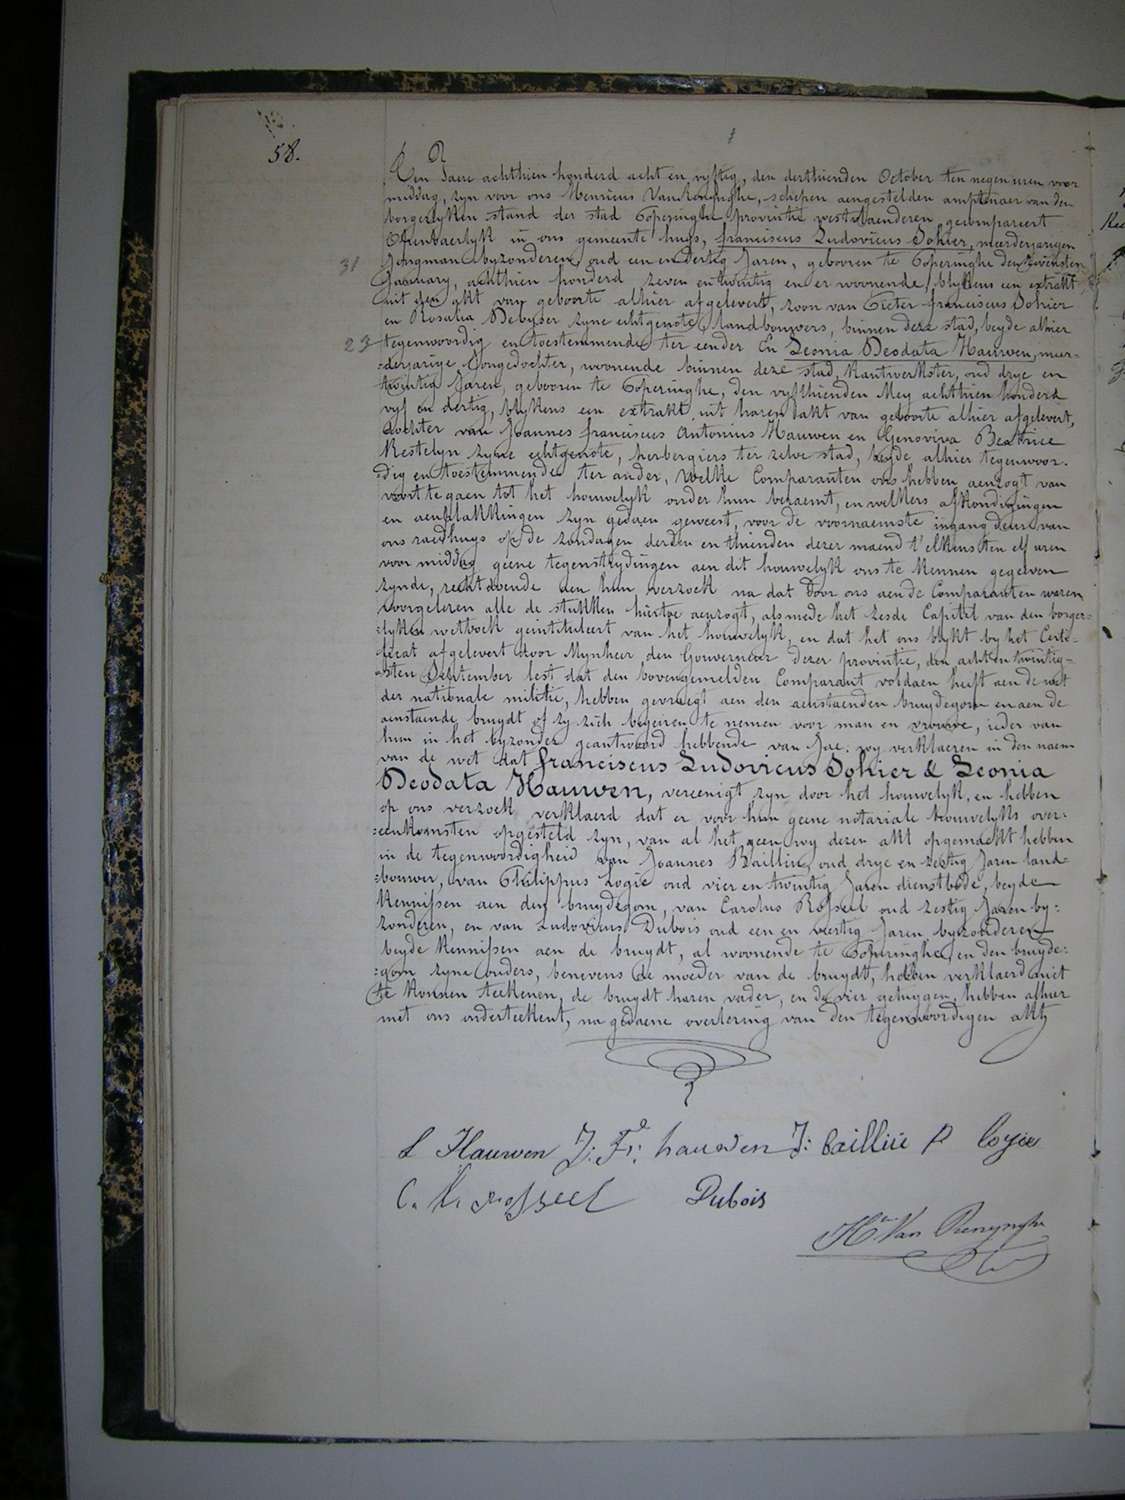 58.
Den Jaere achthien honderd acht en vyftig, den derthienden October ten negen uren voor
middag, zyn voor ons Henricus Van Renynghe, schepen aengestelden amptenaer van den
borgerlyken stand der stad Poperinghe provintie westvlaenderen, gecompareert
Openbaerlyk in ons gemeente huys, franciscus Ludovicus Sohier, meerderjarigen
31
Jongman byzonderen, oud een en dertig Jaren, gebooren te Poperinghe den twensten
January, achthien honderd zeven en twintig en er woonende, blykens een extrakt
uit den akt van geboorte alhier afgelevert, zoon van Pieter franciscus Sohier
en Rosalia Debyser zyne echtgenote, Landbouwers, binnen deze stad, beyde alhier
23
tegenwoordig en toestemmende ter eender En Leonia Deodata Hauwen, meer-
:derjarige Jongedochter, woonende binnen deze stad, Kantwerkster, oud drye en
twintig Jaren, gebooren te Poperinghe, den vyfthienden Mey achthien honderd
vyf en dertig, blykens een extrakt uit haren akt van geboorte alhier afgelevert,
dochter van Joannes franciscus Antonius Hauwen en Genoviva Beatrice
Kestelyn zyne echtgenote, herbergiers ter zelve stad, beyde alhier tegenwoor-
:dig en toestemmende ter ander, Welke Comparanten ons hebben aenzogt van
voort te gaen tot het houwelyk onder hun beraemt, en welkers afkondigingen
en aenplakkingen zyn gedaen geweest, voor de voornaemste ingang deur van
ons raedhuys op de zondagen derden en thienden dezer maend t'elkens ten elf uren
voor middag geene tegenstrydingen aen dit houwelyk ons te kennen gegeven
zynde, rechtdoende aen hun verzoek na dat door ons aen de Comparanten waren
voorgelezen alle de stukken hiertoe aenzogt, alsmede het zesde Capitel van den borger-
:lyken wetboek geintituleert van het houwelyk, en dat het ons blykt by het Certi-
ficat afgelevert door Mynheer den Gouverneur dezer provintie, den acht en twintig-
:sten September lest dat den bovengemelden Comparant voldaen heeft aen de wet
der nationale militie, hebben gevraegt aen den aenstaenden bruydegom en aen de
aenstaende bruydt of zy zich begeiren te nemen voor man en vrouwe, ieder van
hun in het byzonder geantwoord hebbende van Jae: wy verklaeren in den naem
van de wet dat franciscus Ludovicus Sohier & Leonia
Deodata Hauwen, vereenigt zyn door het houwelyk, en hebben
op ons verzoek verklaerd dat er voor hun geene notariale houwelyks over-
:eenkomsten opgesteld zyn, van al het geen wy dezen akt opgemaekt hebben
in de tegenwoordigheid van Joannes Baillieu, oud drye en zestig Jaren land-
:bouwer, van Philippus Logie oud vier en twintig Jaren dienstbode, beyde
Kennissen aen den bruydegom, van Carolus Rosseel oud zestig Jaren by:
zonderen, en van Ludovicus Dubois oud een en veertig Jaren byzonderen
beyde Kennissen aen de bruydt, al woonende te Poperinghe, en den bruyde:
:gom zyne ouders, benevens de moeder van de bruydt, hebben verklaerd niet
te konnen teekenen, de bruydt haren vader, en de vier getuygen, hebben alhier
met ons onderteekent, na gedaene overlezing van den tegenwoordigen akt
L Hauwen J: Fr: hauwen J: bailliu P Logie
C. Rosseel Dubois
Hri Van Renynghe